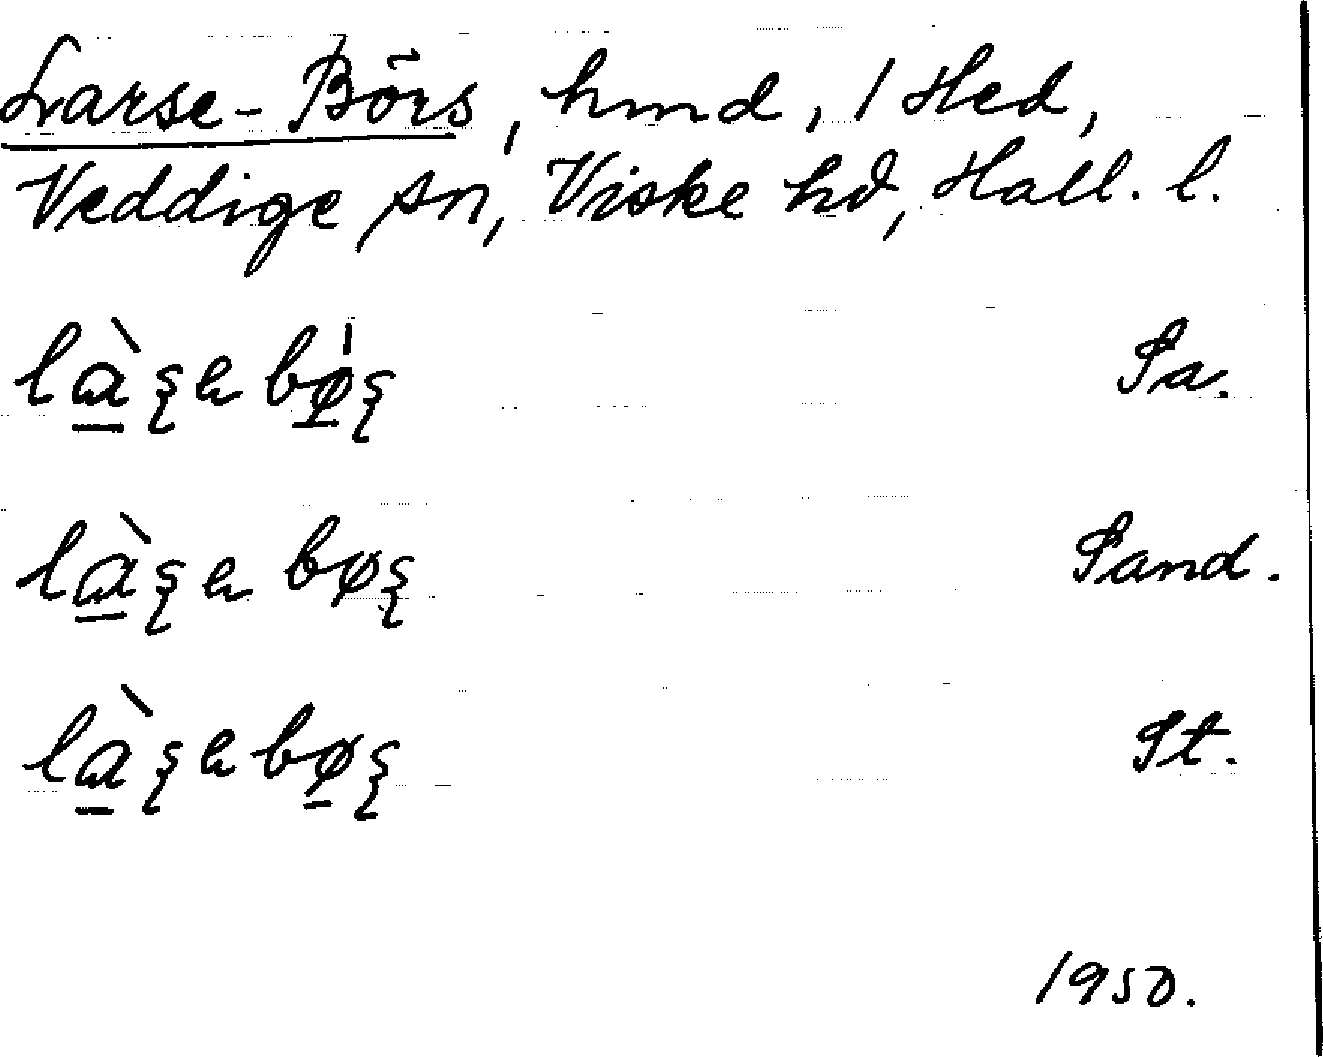 Larse-Börs, hmd, 1 Hed,
Veddige sn, Viske hd, Hall. l.
là̱ʂe bǿ̱ʂ Sa.
là̱ʂe bøʂ Sand.
là̱ʂe bø̱ʂ St.
1950.